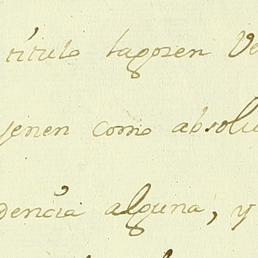 título tagosen Ve
yenen como absolu
dencia alguna, y